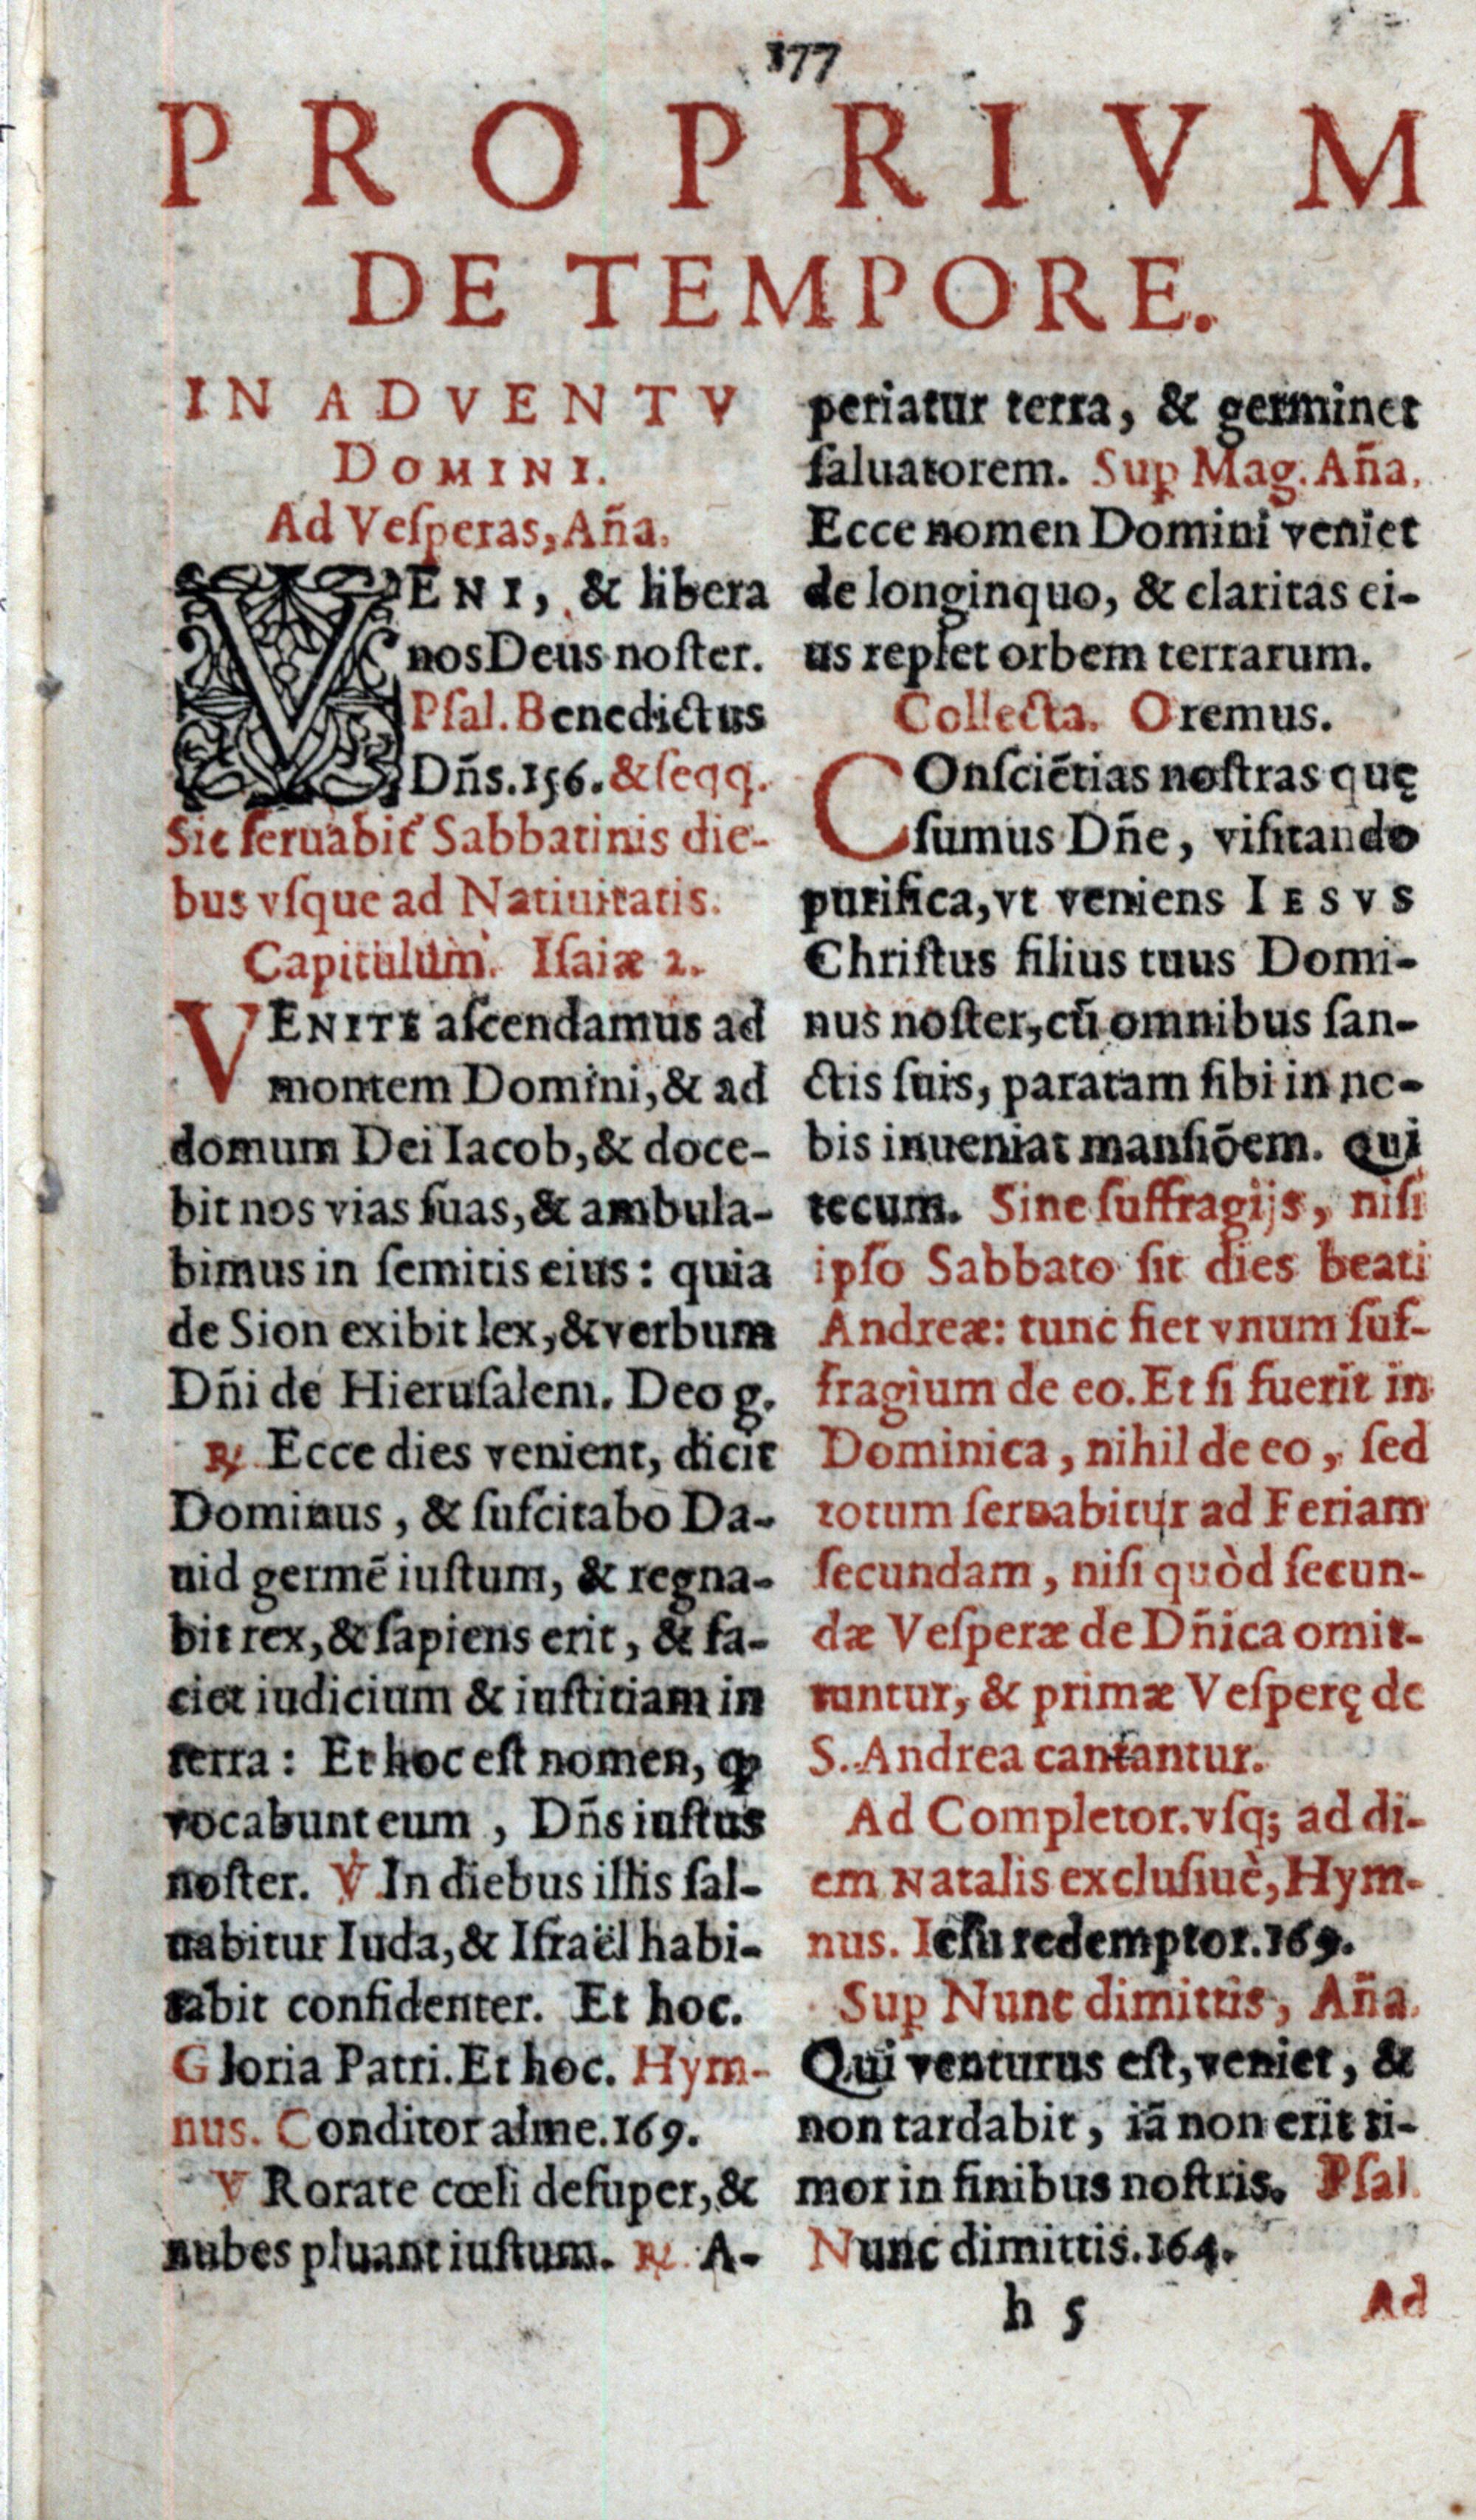 177
PROPRIVM
DE TEMPORE.
IN ADVENTV
DOMINI.
Ad Veſperas, Aña.
VENI, & libera
nos Deus noſter.
Pſal. Benedictus
Dñs. 156. & ſeqq.
Sic ſeruabit᷑ Sabbatinis die-
bus vſque ad Natiuitatis.
Capitulum. Iſaiæ 2.
VENITE aſcendamus ad
montem Domini, & ad
domum Dei Iacob, & doce-
bit nos vias ſuas, & ambula-
bimus in ſemitis eius: quia
de Sion exibit lex, & verbum
Dñi de Hieruſalem. Deo g.
℟ Ecce dies venient, dicit
Dominus, & ſuſcitabo Da-
uid germē iuſtum, & regna-
bit rex, & ſapiens erit, & fa-
ciet iudicium & iuſtitiam in
terra: Et hoc eſt nomen, ꝙ
vocabunt eum, Dñs iuſtus
noſter. ℣ In diebus illis ſal-
uabitur Iuda, & Iſraël habi-
tabit confidenter. Et hoc.
Gloria Patri. Et hoc. Hym-
nus. Conditor alme. 169.
V Rorate cœli deſuper, &
nubes pluant iuſtum. ℟ A-
periatur terra, & germinet
ſaluatorem. Suꝑ Mag. Aña.
Ecce nomen Domini veniet
de longinquo, & claritas ei-
us replet orbem terrarum.
Collecta. Oremus.
COnſciētias noſtras quę
ſumus Dñe, viſitando
purifica, vt veniens IESVS
Chriſtus filius tuus Domi-
nus noſter, cū omnibus ſan-
ctis ſuis, paratam ſibi in no-
bis inueniat manſiōem. Qui
tecum. Sine ſuffragijs, niſi
ipſo Sabbato ſit dies beati
Andreæ: tunc fiet vnum ſuf-
fragium de eo. Et ſi fuerit in
Dominica, nihil de eo, ſed
totum ſeruabitur ad Feriam
ſecundam, niſi quòd ſecun-
dæ Veſperæ de Dñica omit-
tuntur, & primæ Veſperę de
S. Andrea cantantur.
Ad Completor. vſq; ad di-
em Natalis excluſiuè, Hym-
nus. Ieſu redemptor. 169.
Suꝑ Nunc dimittis, Aña.
Qui venturus eſt, veniet, &
non tardabit, iā non erit ti-
mor in finibus noſtris. Pſal.
Nunc dimittis. 164.
h 5
Ad